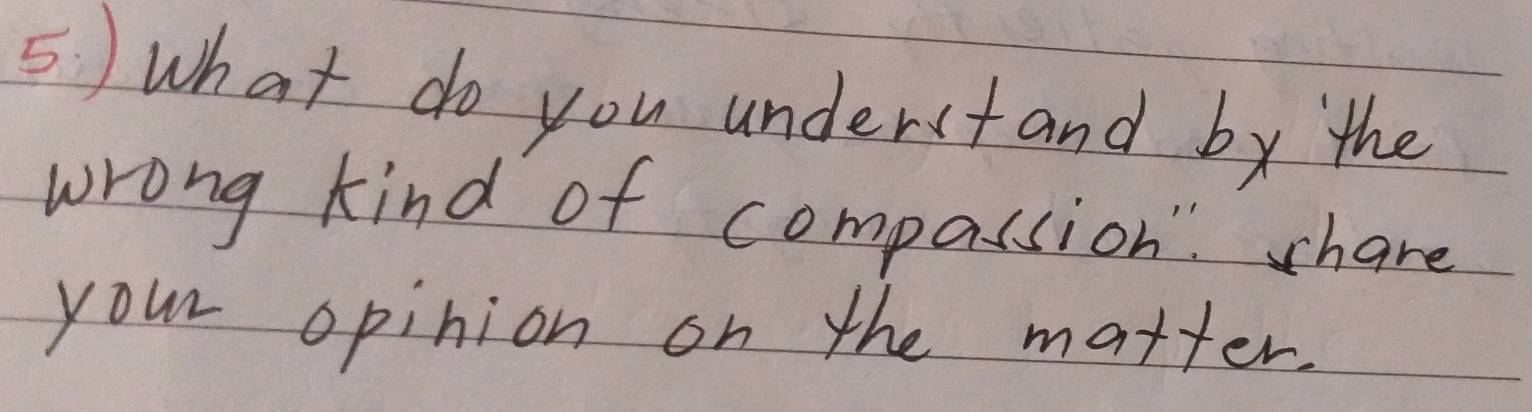 5.) What do you understand by "the
wrong kind of compassion". share
your opinion on the matter.